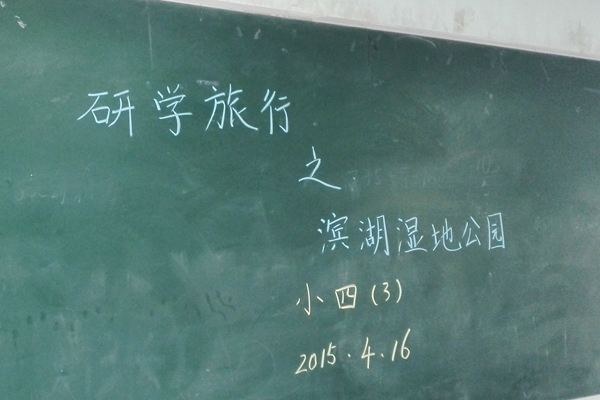 研学旅行
之
滨湖湿地公园
小四(3)
2015.4.16